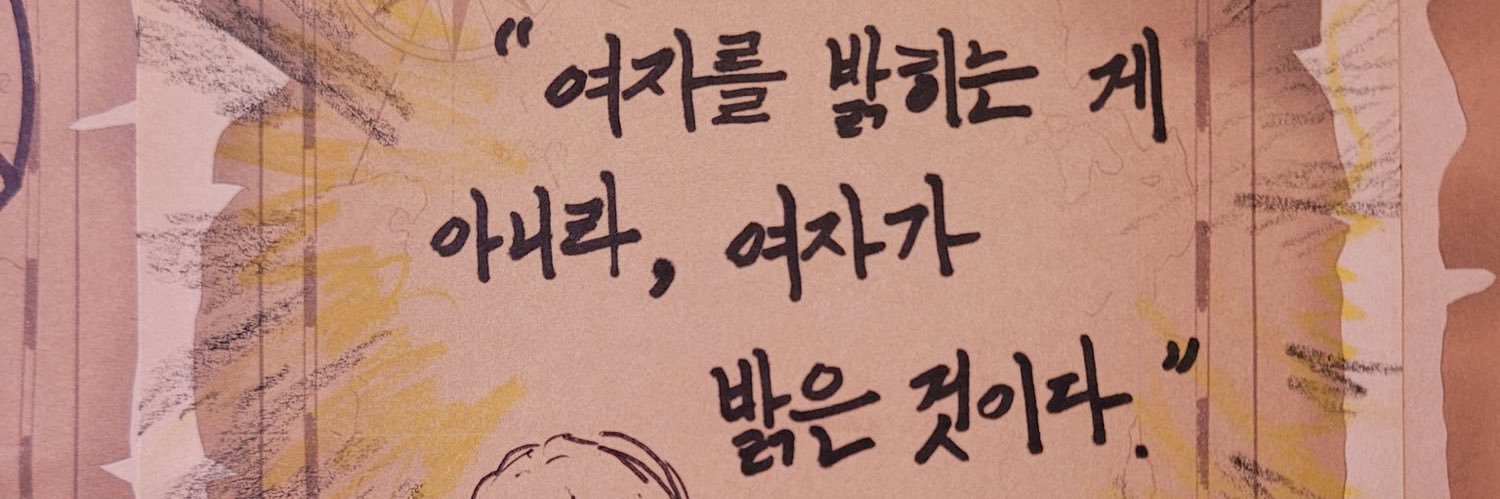 "여자를 밝히는 게
아니라, 여자가
밝은 것이다."